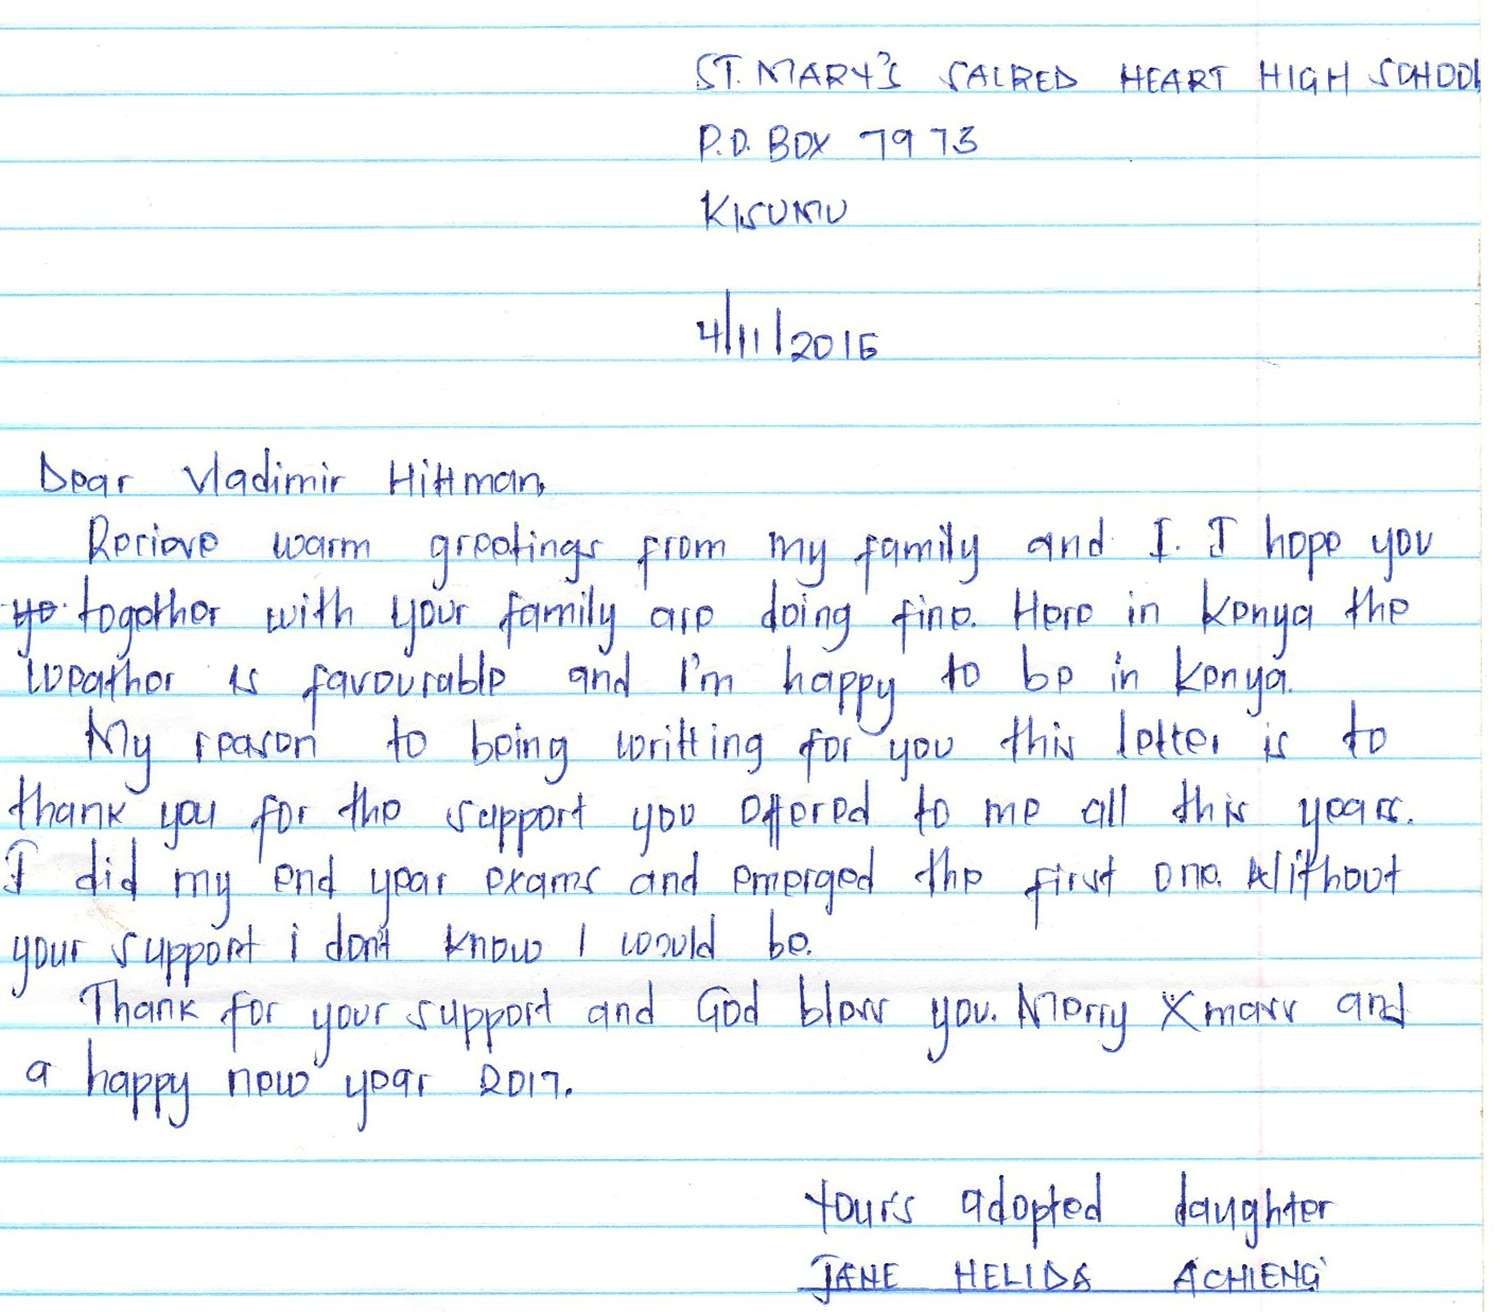 ST. MARY'S SACRED HEART HIGH SCHOOL
P.O. BOX 7973
KISUMU
4/11/2016
Dear Vladimir Hittman,
Recieve warm greetings from my family and I. I hope you
yo together with your family are doing fine. Here in Kenya the
weather is favourable and I'm happy to be in Kenya.
My reason to being writting for you this letter is to
thank you for the support you offered to me all this years.
I did my end year exams and emerged the first one. Without
your support i don't know I would be.
Thank for your support and God bless you. Merry Xmass and
a happy new year 2017.
Your's adopted daughter
JANE HELIDA ACHIENG'